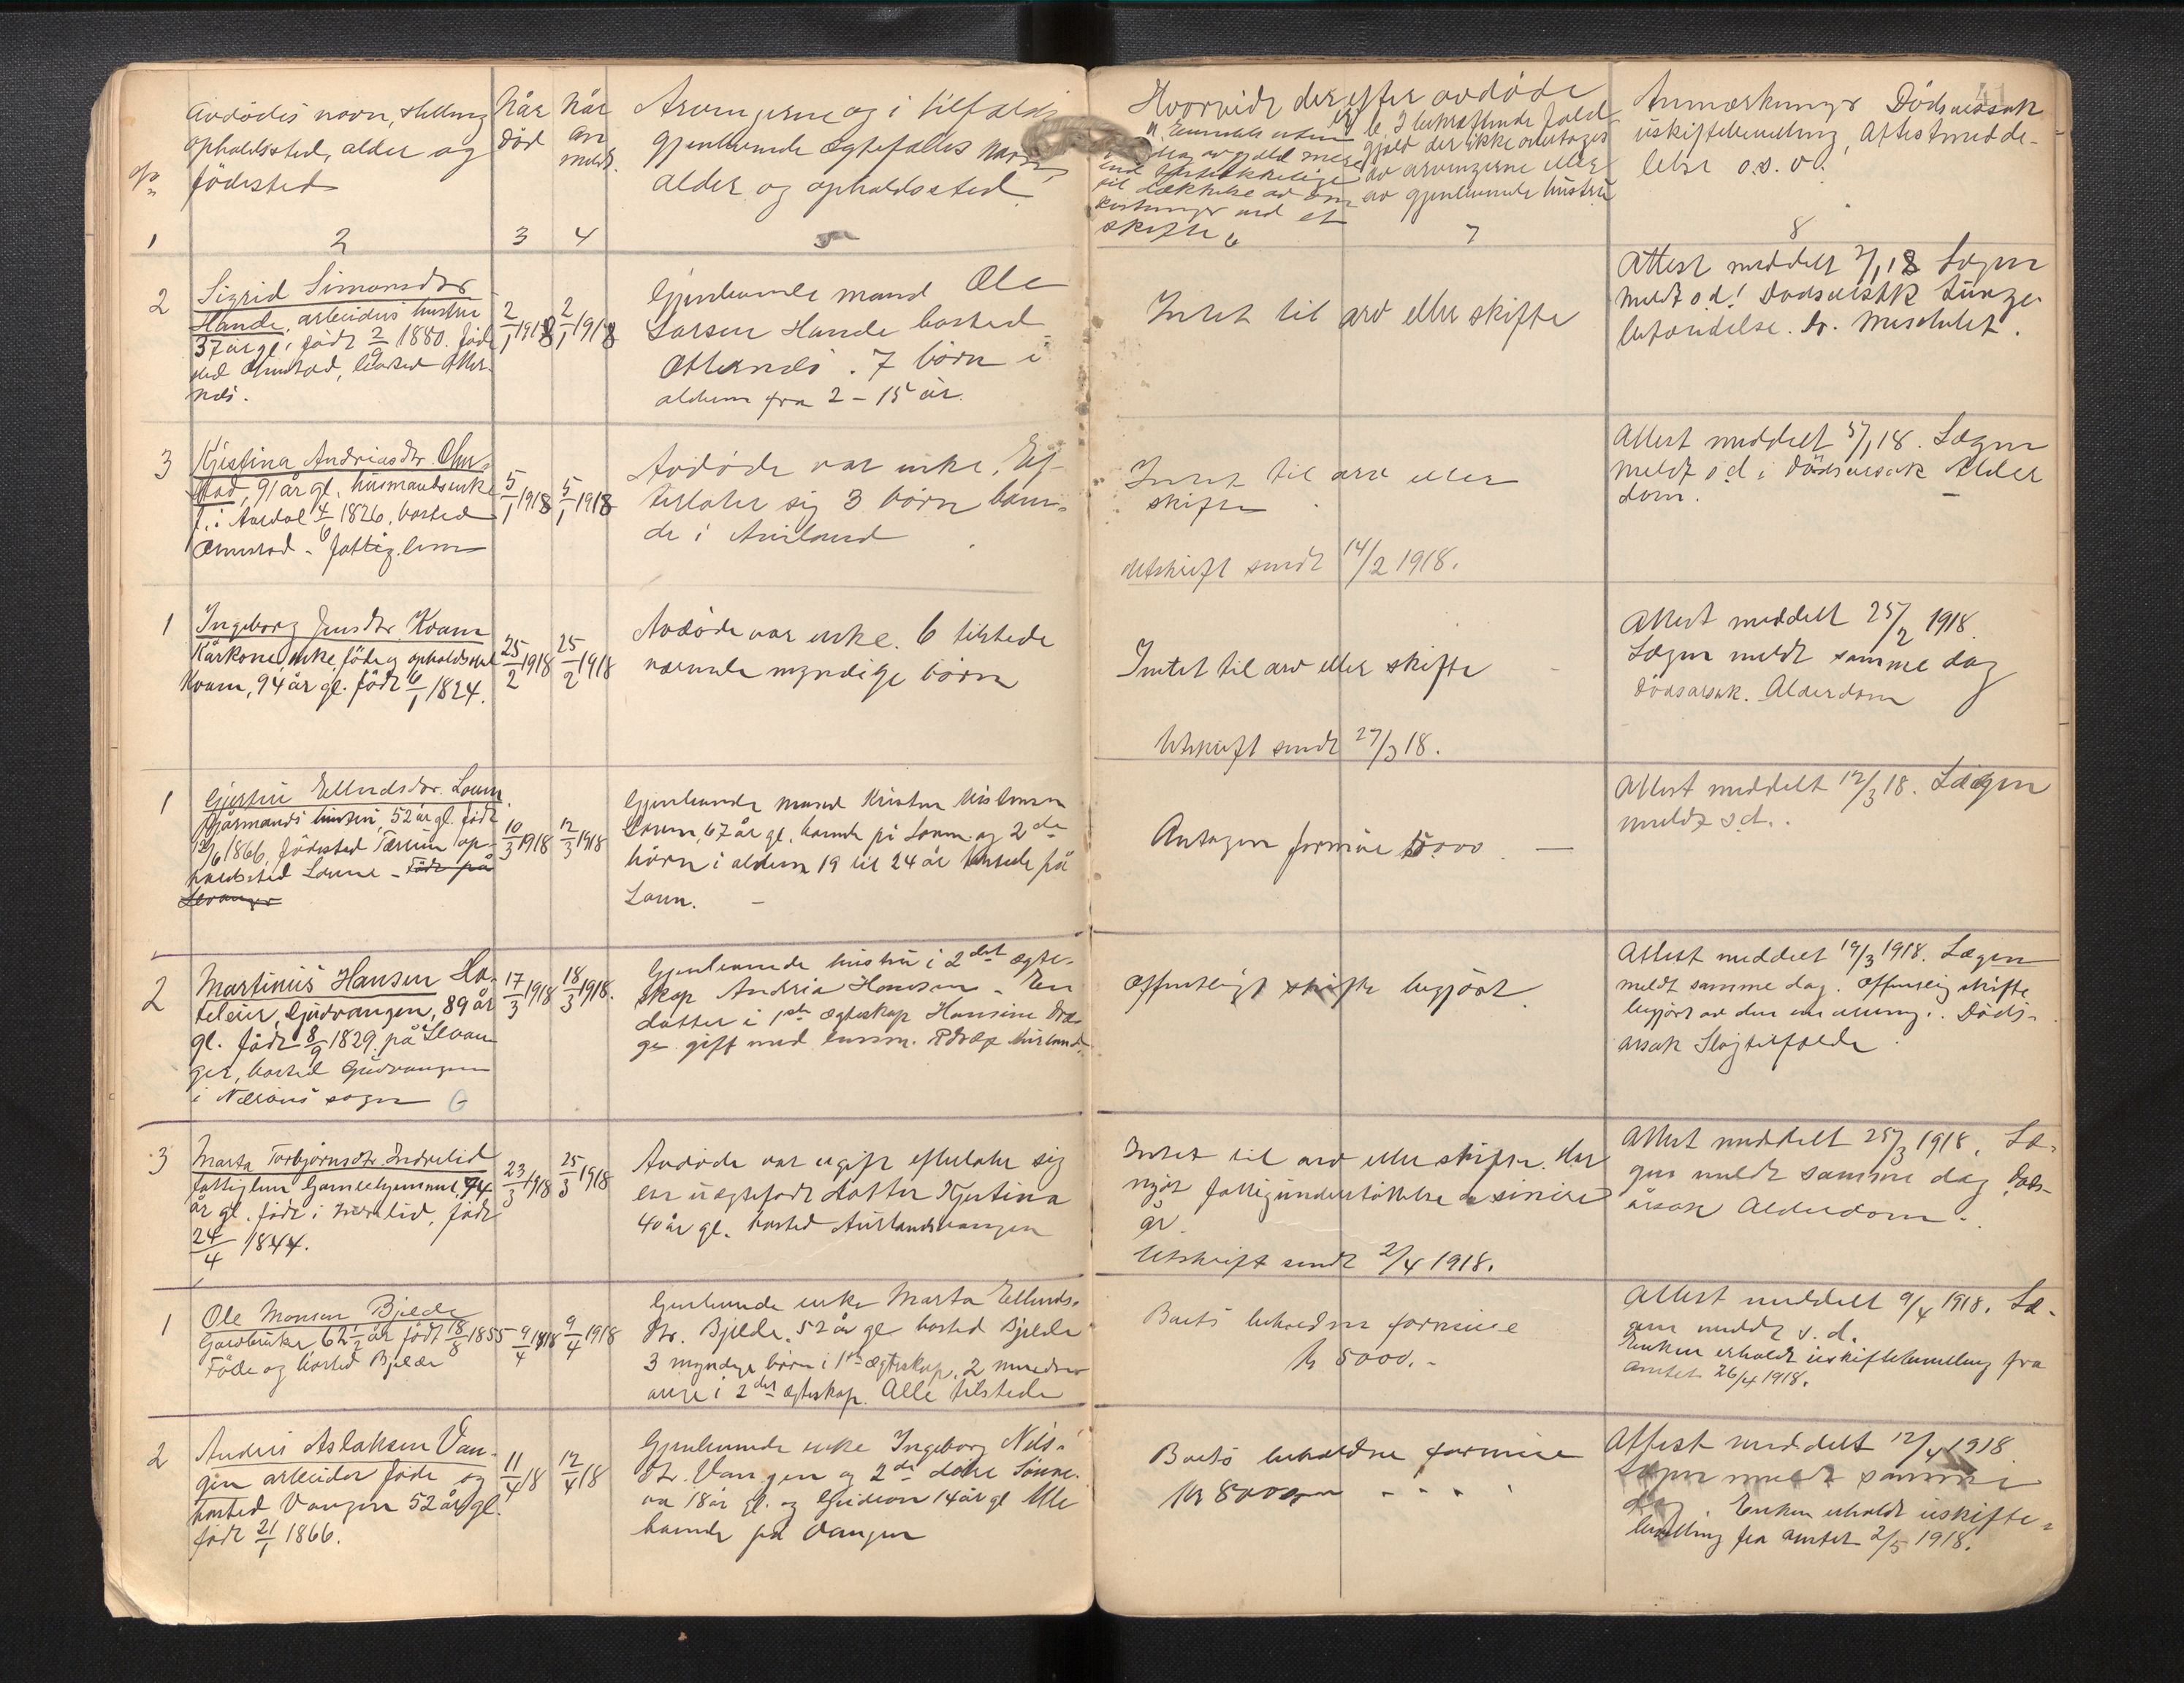 Avdødes navn, stilling
opholdssted, alder og
fødested
Når
død
Når
an
meldt.
Arvingerne og i tilfælde
gjenlevende ægtefælles navn,
alder og opholdssted.
Hvorvidt der efter avdøde
til dækkelse av om
kostninger ved et
skifte
b, I bekræftende fald
gjæld der ikke overtages
av arvingerne eller
av gjenlevende hustru
Anmærkninger Dødsaarsak
uskiftebevilling, Attestmedde-
lelse o.s.v.
1
2
3
4
5
6
7
8
2
Sigrid Simonsdtr
Hande, arbeiders hustru
37 år gl. født 2/9 1880. føde
sted Onstad, bosted Otter
nes.
2/1 1918
2/1 1918
Gjenlevende mand Ole
Larsen Hande bosted
Otternes. 7 børn i
alderen fra 2 - 15 år.
Intet til arv eller skifte
Attest meddelt 2/1 18 Lægen
meldt s d! Dødsaarsak Lunge-
betændelse.
3
Kjestina Andriasdtr. Onn
stad, 91 år gl. husmandsenke
f. i Aardal 4/6 1826, bosted
Onnstad - fattiglem
5/1 1918
5/1 1918
Avdøde var enke. Ef-
terlater sig 3 børn boen-
de i Aurland
Intet til arv eller
skifte
Utskrift sendt 14/2 1918.
Attest meddelt 5/1 18. Lægen
meldt s d. Dødsaarsak Alder
dom.
1
Ingeborg Jensdtr. Kvam
Kårkone, enke, føde og opholdssted
Kvam, 94 år gl. født 6/1 1824.
25/2 1918
25/2 1918
Avdøde var enke. 6 tilstede
værende myndige børn
Intet til arv eller skifte
Utskrift sendt 27/3 18.
Attest meddelt 25/2 1918.
Lægen meldt samme dag
Dødsarsak. Alderdom
1
Gjertin Ellendsdtr. Loven
Kårmands hustru, 52 år gl. født
12/6 1866, fødested Tærum op-
holdssted Lovne - Føde på
Levanger
10/3 1918
12/3 1918
Gjenlevende mand Kristen Kristensen
Loven, 67 år gl. boende på Loven og 2de
børn i alderen 19 til 24 år boende på
Loven. -
Antagen formue 5000 -
Attest meddelt 12/3 18. Lægen
meldt s.d..
2
Martinus Hansen Ho-
teleier, Gudvangen, 89 år
gl. født 8/9 1829. på Levan
ger, bosted Gudvangen
i Nærøens sogn
17/3 1918
18/3 1918.
Gjenlevende hustru i 2det ægte-
skap Andria Hansen - En
datter i 1ste ægteskap Hansine
gift med lensm.
Offentligt skifte begjært.
Attest meddelt 19/3 1918. Lægen
meldt samme dag. Offentlig skifte
begjært av den ene arving. Døds-
arsak Slagtilfælde
3
Marta Torbjørnsdtr. Indrelid
fattiglem Gamlehjemmet, 74
år gl. født i Indrelid, født
24/4 1844.
23/3 1918
25/3 1918
Avdøde var ugift efterlater sig
en uægtefødt datter Kjestina
40 år gl. bosted Aurlandsvangen
Intet til arv eller skifte. Har
nydt fattigunderstøttelse de senere
år.
Utskrift sendt 2/4 1918.
Attest meddelt 25/3 1918. Læ-
gen meldt samme dag Døds-
årsak Alderdom -.
1
Ole Monsen Bjelde
Gårdbruker, 62 1/2 år født 18/8 1855
Føde og bosted Bjelde
9/4 1918
9/4 1918
Gjenlevende enke Marta Ellends-
dtr. Bjelde. 52 år gl bosted Bjelde
3 myndige børn i 1ste ægteskap, 2 mindreår
ige i 2det ægteskap. Alle tilstede
Boets beholdne formue
kr 5000. -
Attest meddelt 9/4 1918. Læ-
gen meldt s. d.
Enken erholdt uskiftebevilling fra
amtet 26/4 1918.
2
Anders Aslaksen Van-
gen arbeider føde og
bosted Vangen 52 år gl.
født 21/1 1866.
11/4 18
12/4 18
Gjenlevende enke Ingeborg Nils-
dtr. Vangen og 2de døtre Sunne-
va 18 år gl. og Gudrun 14 år gl Alle
boende på Vangen
Boets beholdne formue
kr 8000
Attest meddelt 12/4 1918
Lægen meldt samme
dag. Enken erholdt uskifte-
bevilling fra amtet 2/5 1918.